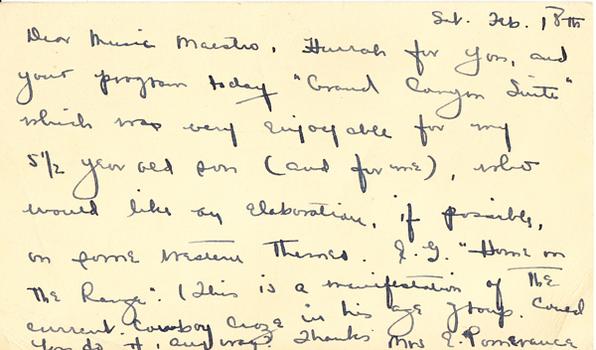 Sat. Feb. 18th
Dear Music Maestro, Hurrah for you, and
your program today "Grand Canyon Suite"
which was very enjoyable for my
5 1/2 year old son (and for me), who
would like an elaboration, if possible,
on some Western Themes. E.G. "Home on
the Range". (This is a manifestation of the
current cowboy craze in his age group. Could
you do it, anyway? Thanks Mrs E. Pomerance